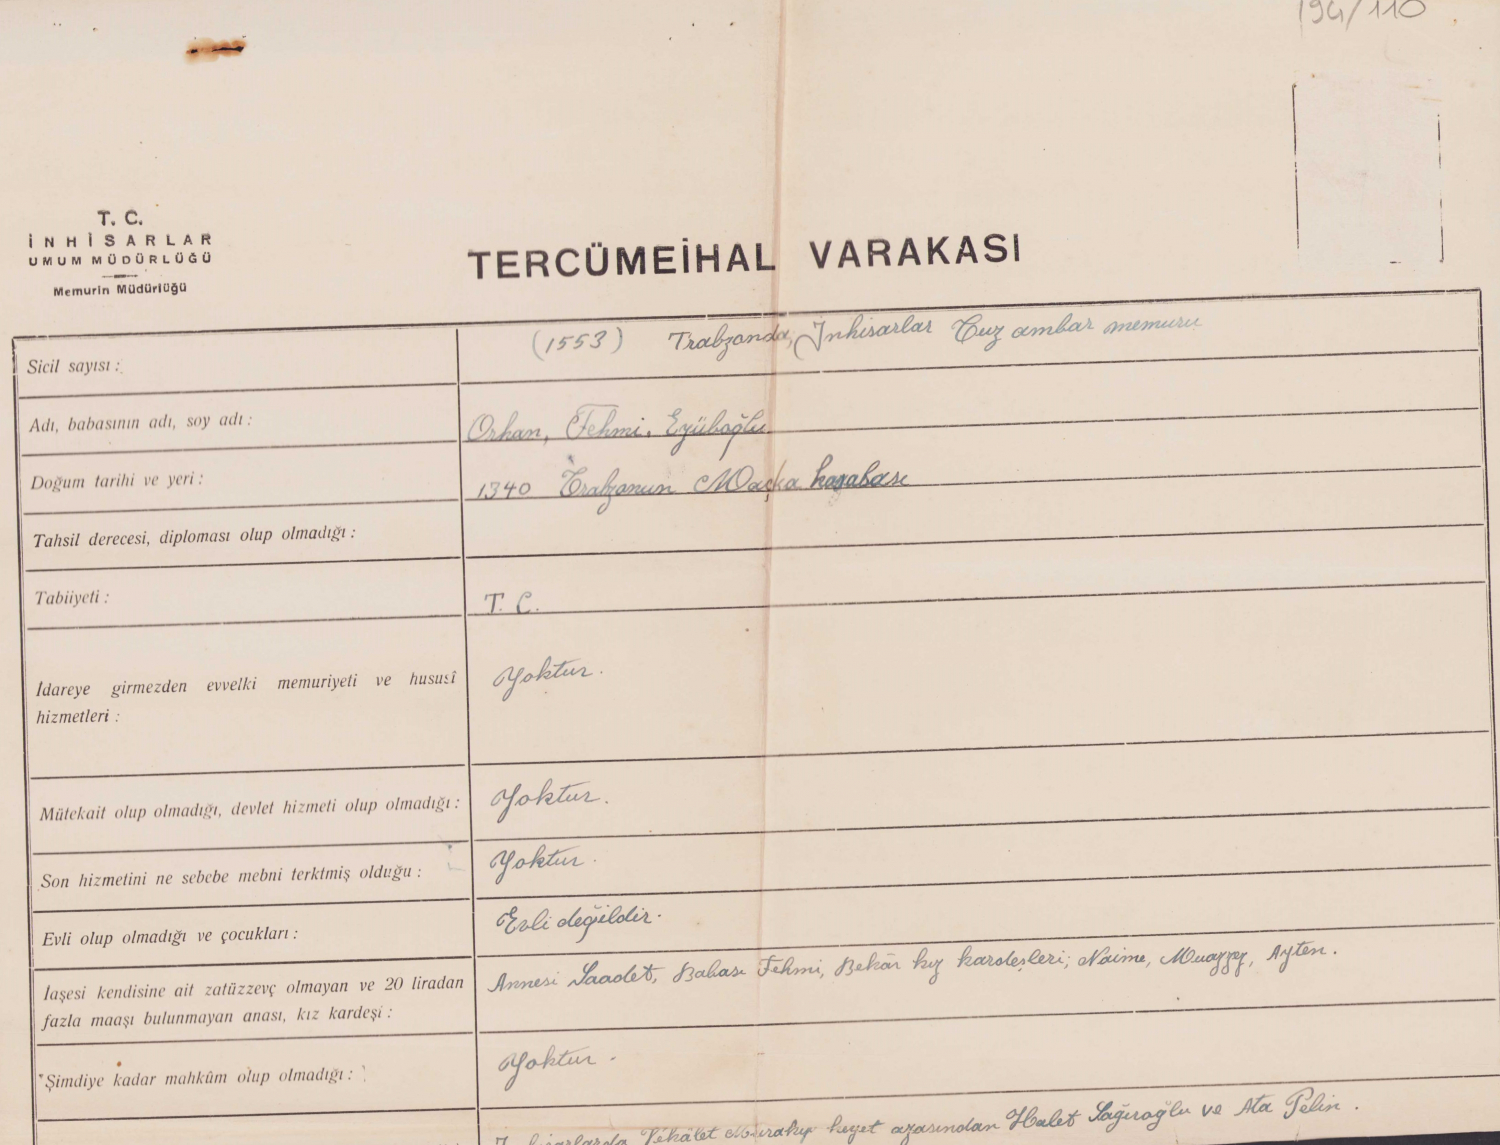 194/110
T. C.
İNHİSARLAR
UMUM MÜDÜRLÜĞÜ
Memurin Müdürlüğü
TERCÜMEİHAL VARAKASI
Sicil sayısı : (1553) Trabzonda, İnhisarlar Tuz ambar memuru
Adı, babasının adı, soy adı : Orhan, Fehmi, Eyüboğlu
Doğum tarihi ve yeri : 1340 Trabzonun Maçka kasabası
Tahsil derecesi, diploması olup olmadığı :
Tabiiyeti : T. C.
İdareye girmezden evvelki memuriyeti ve hususî Yoktur.
hizmetleri :
Mütekait olup olmadığı, devlet hizmeti olup olmadığı : Yoktur.
Son hizmetini ne sebebe mebni terktmiş olduğu : Yoktur.
Evli olup olmadığı ve çocukları : Evli değildir.
İaşesi kendisine ait zatüzzevç olmayan ve 20 liradan Annesi Saadet, Babası Fehmi, Bekâr kız kardeşleri; Naime, Muazzez, Ayten.
fazla maaşı bulunmayan anası, kız kardeşi :
Şimdiye kadar mahkûm olup olmadığı : Yoktur.
İnhisarlarda Vekâlet Murakıp heyet azasından Halet Sağıroğlu ve Ata Pelin.